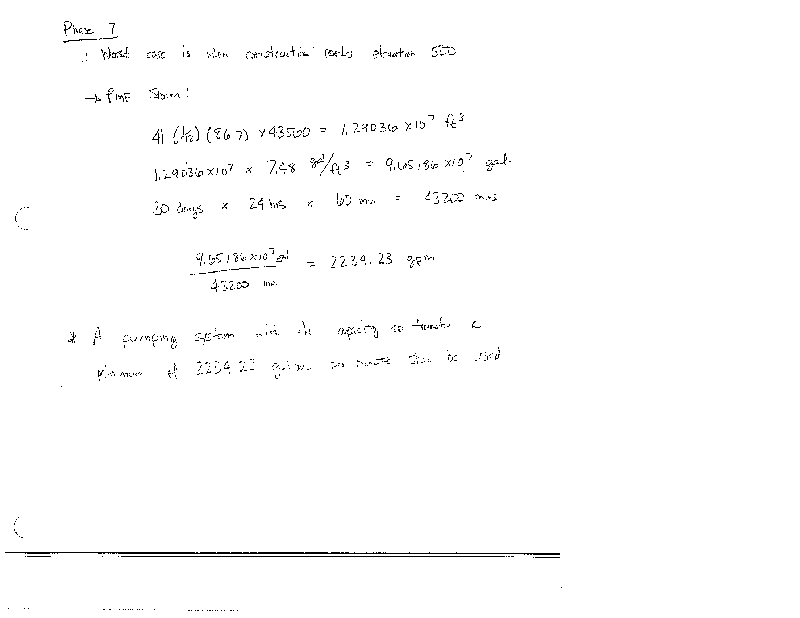 Phase 7
: Worst case is when construction reaches elevation 550
→ PMF Storm:
41 (1/12) (86.7) x 43560 = 1.29036 x 10⁷ ft³
1.29036 x 10⁷ x 7.48 gal/ft³ = 9.65186 x 10⁷ gal.
30 days x 24 hrs x 60 min = 43200 mins
9.65186 x 10⁷ gal / 43200 min = 2234.23 gpm
* A pumping system with the capacity to transfer a
minimum of 2234.23 gallons per minute shall be used